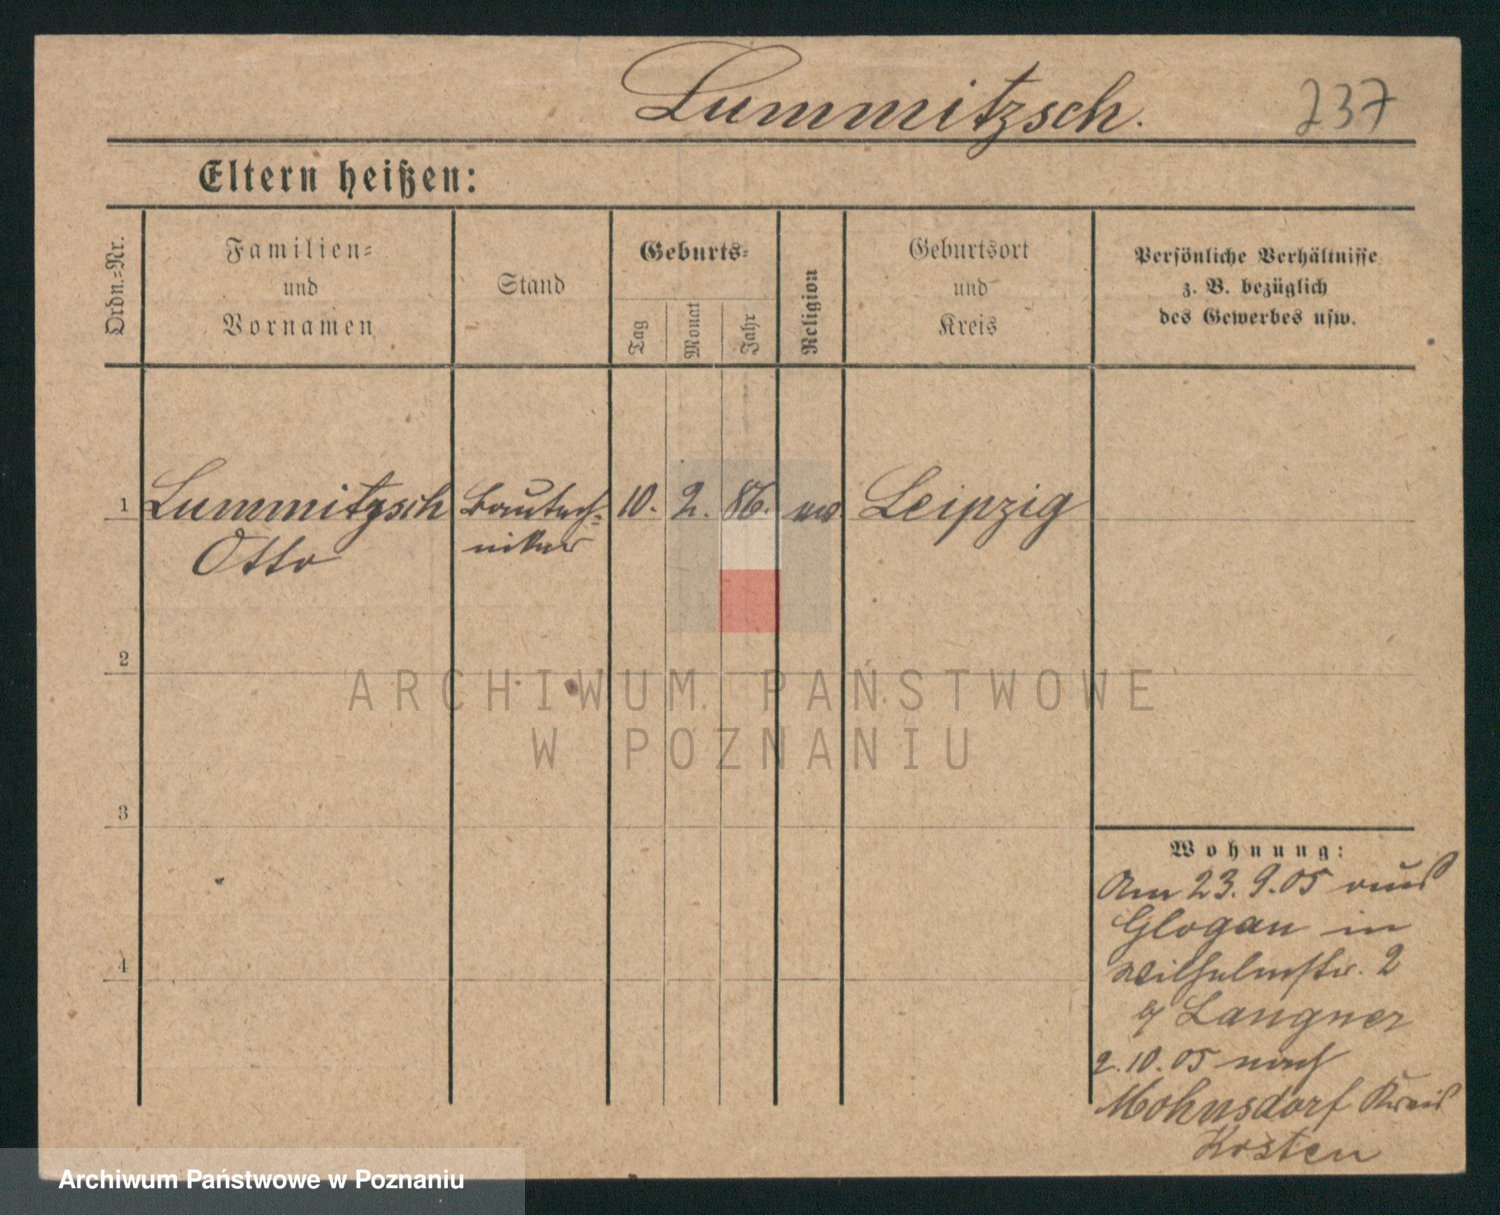 Lummitzsch.
237
Eltern heißen:
Ordn.-Nr.
Familien-
und
Vornamen
Stand
Geburts-
Tag
Monat
Jahr
Religion
Geburtsort
und
Kreis
Persönliche Verhältnisse
z. B. bezüglich
des Gewerbes usw.
1
Lummitzsch
Otto
Bautech-
niker
10. 2. 86. ev.
Leipzig
2
3
4
Wohnung:
Am 23.9.05 aus
Glogau in
Wilhelmstr. 2
Langner
2.10.05 nach
Mohnsdorf Kreis
Kosten
ARCHIWUM PAŃSTWOWE
W POZNANIU
Archiwum Państwowe w Poznaniu